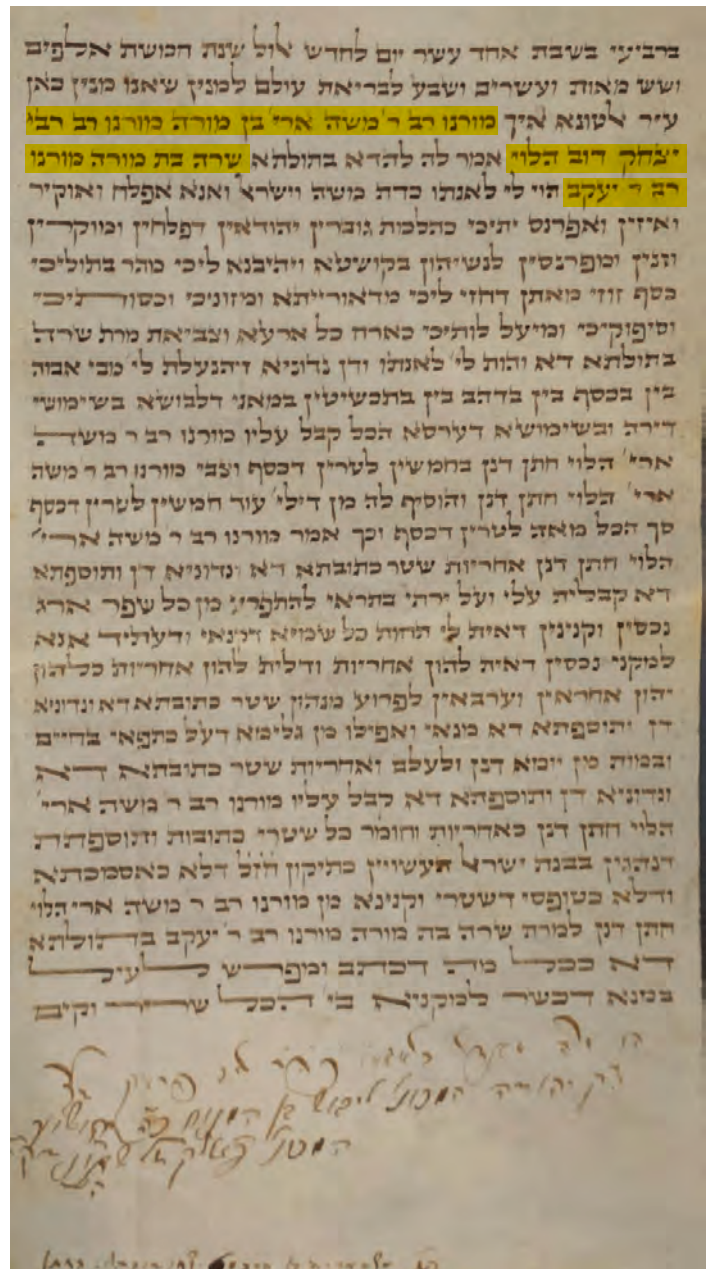 ברביעי בשבת אחד עשר יום לחדש אלול שנת חמשת אלפים
ושש מאות ועשרים ושבע לבריאת עולם למנין שאנו מנין כאן
עיר אלטונא איך מורנו רב ר' משה ארי' בן מורה מורנו רב רבי
יצחק דוב הלוי אמר לה להדא בתולתא שרה בת מורה מורנו
רב ר יעקב הוי לי לאנתו כדת משה וישרא' ואנא אפלח ואוקיר
ואיזין ואפרנס יתיכי כהלכות גוברין יהודאין דפלחין ומוקרין
וזנין ומפרנסין לנשיהון בקושטא ויהיבנא ליכי מהר בתוליכי
כסף זוזי מאתן דחזי ליכי מדאורייתא ומזוניכי וכסותיכי
וסיפוקיכי ומיעל לותיכי כארח כל ארעא וצביאת מרת שרה
בתולתא דא והות לי' לאנתו ודן נדוניא דהנעלת לי' מבי אבוה
בין בכסף בין בדהב בין בתכשיטין במאני דלבושא בשימושי
דירה ובשימושא דערסא הכל קבל עליו מורנו רב ר משה
ארי' הלוי חתן דנן בחמשין לטרין דכסף וצבי מורנו רב ר משה
ארי' הלוי חתן דנן והוסיף לה מן דילי' עוד חמשין לטרין דכסף
סך הכל מאה לטרין דכסף וכך אמר מורנו רב ר משה ארי'
הלוי חתן דנן אחריות שטר כתובתא דא ונדוניא דין ותוספתא
דא קבלית עלי ועל ירתי בתראי להתפרע מן כל שפר ארג
נכסין וקנינין דאית לי תחות כל שמיא דקנאי ודעתיד אנא
למקני נכסין דאית להון אחריות ודלית להון אחריות כלהון
יהון אחראין וערבאין לפרוע מנהון שטר כתובתא דא ונדוניא
דן ותוספתא דא מנאי ואפילו מן גלימא דעל כתפאי בחיים
ובמות מן יומא דנן ולעלם ואחריות שטר כתובתא דא
ונדוניא דן ותוספתא דא קבל עליו מורנו רב ר משה ארי'
הלוי חתן דנן כאחריות וחומר כל שטרי כתובות ותוספתת
דנהגין בבנת ישרא' העשויין כתיקון חז"ל דלא כאסמכתא
ודלא כטופסי דשטרי וקנינא מן מורנו רב ר משה ארי הלוי
חתן דנן למרת שרה בת מורה מורנו רב ר' יעקב בתולתא
דא ככל מה דכתב ומפרש לעיל
במנא דכשר למקניא בי' הכל שריר וקים